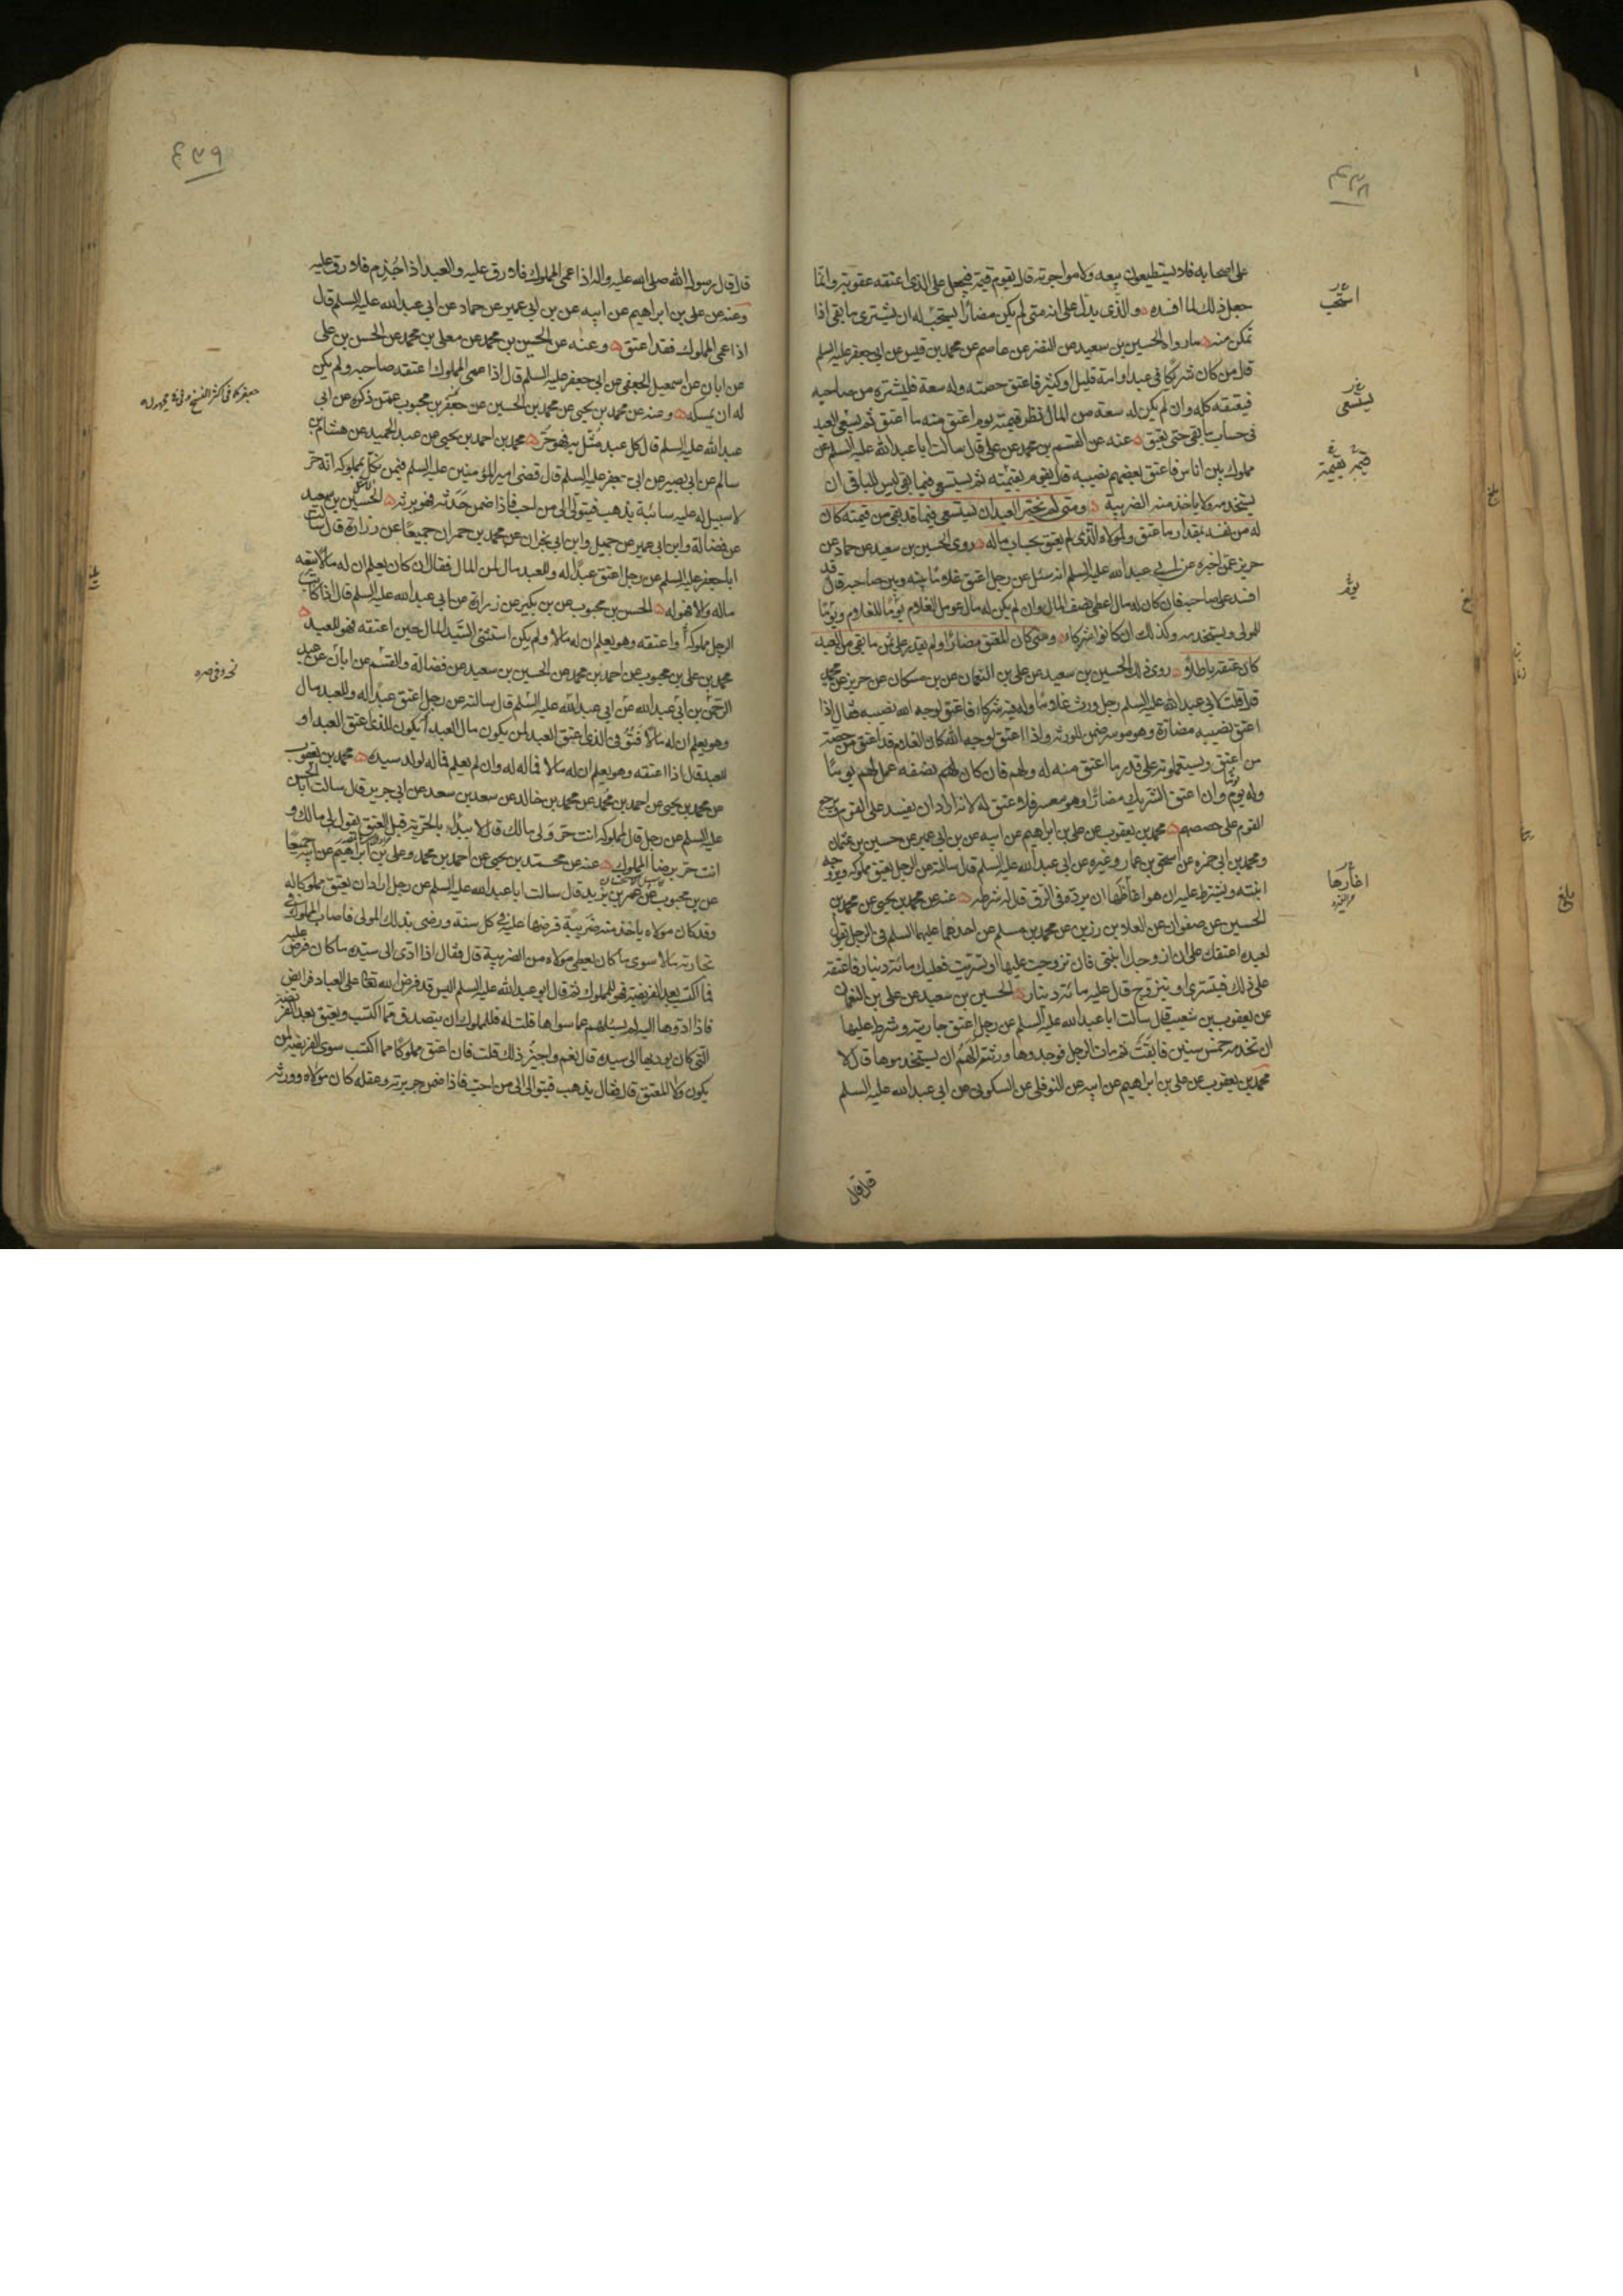 على اصحابه فلا يستطيعون بيعه ولا مواجرته قال يقوم قيمة فيجعل على الذى اعتقه عقوبة وانما
جعل ذلك لما افسده والذى يدل على انه متى لم يكن مضارا يستحب له ان يشترى ما بقى اذا
تمكن منه مارواه الحسين بن سعيد عن النضر عن عاصم عن محمد بن قيس عن ابى جعفر عليه السلم
قال من كان شريكا فى عبد او امة قليل او كثير فاعتق حصته وله سعة فليشتره من صاحبه
فيعتقه كله وان لم يكن له سعة من المال نظر قيمته يوم اعتق منه ما اعتق ثم يسعى العبد
فى حساب ما بقى حتى يعتق عنه عن القسم بن محمد عن على قال سالت ابا عبد الله عليه السلم عن
مملوك بين اناس فاعتق بعضهم نصيبه قال يقوم بقيمته ثم يستسعى فيما بقى ليس للباقى ان
يستخدمه ولا ياخذ منه الضريبة ومتى لم يختر العبد ان يستسعى فيما قد بقى من قيمته كان
له من نفسه بقدار ما عتق ولمولاه الذى لم يعتق بحساب ماله روى الحسين بن سعيد عن حماد عن
حريز عمن اخبره عن ابى عبد الله عليه السلم انه سئل عن رجل اعتق غلاما بينه وبين صاحبه قال قد
افسد على صاحبه فان كان له مال اعطى نصف المال وان لم يكن له مال عومل الغلام يوما للغلام ويوما
للمولى ويستخدمه وكذلك ان كانوا شركاء ومتى كان المعتق مضارا ولم يقدر على ثمن ما بقى من العبد
كان عتقه باطلا روى ذلك الحسين بن سعيد عن على بن النعمان عن بن مسكان عن حريز عن محمد
قال قلت لابى عبد الله عليه السلم رجل ورث غلاما وله فيه شركاء فاعتق لوجه الله نصيبه فقال اذا
اعتق نصيبه مضارة وهو موسر ضمن للورثة واذا اعتق لوجه الله كان الغلام قد اعتق من حصة
من اعتق ويستعملونه على قدر ما اعتق منه له ولهم فان كان لهم نصفه عمل لهم يوما
وله يوم وان اعتق الشريك مضارا وهو معسر فلا عتق له لانه اراد ان يفسد على القوم يرجع
القوم على حصصهم محمد بن يعقوب عن على بن ابراهيم عن ابيه عن بن ابى عمير عن حسين بن عثمان
ومحمد بن ابى حمزه عن اسحق بن عمار وغيره عن ابى عبد الله عليه السلم قال سالته عن الرجل يعتق مملوكه ويزوجه
ابنته ويشترط عليه ان هو اغاظها ان يرده فى الرق قال له شرطه عنه عن محمد بن يحيى عن محمد بن
الحسين عن صفوان عن العلا بن رزين عن محمد بن مسلم عن احدهما عليهما السلم فى الرجل يقول
لعبده اعتقك على ان ازوجك ابنتى فان تزوجت عليها او تسريت فعليك مائة دينار فاعتقه
على ذلك فيتسرى او يتزوج قال عليه مائة دينار الحسين بن سعيد عن على بن النعمان
عن يعقوب بن شعيب قال سالت ابا عبد الله عليه السلم عن رجل اعتق جاريته وشرط عليها
ان تخدمه خمس سنين فابقت ثم مات الرجل فوجدوها ورثته الهم ان يستخدموها قال لا
محمد بن يعقوب عن على بن ابراهيم عن ابيه عن النوفلى عن السكونى عن ابى عبد الله عليه السلم
قال قال
استحب
يستسعى
قيمة بقيمة
اغارها
بلغ
٤٣٩
قال قال رسول الله صلى الله عليه واله اذا عمى المملوك فلا رق عليه والعبد اذا جذم فلا رق عليه
وعنه عن على بن ابراهيم عن ابيه عن بن ابى عمير عن حماد عن ابى عبد الله عليه السلم قال
اذا عمى المملوك فقد اعتق وعنه عن الحسين بن محمد عن معلى بن محمد عن الحسن بن على
عن ابان عن اسمعيل الجعفى عن ابى جعفر عليه السلم قال اذا عمى المملوك اعتقه صاحبه ولم يكن
له ان يمسكه وعنه عن محمد بن يحيى عن محمد بن الحسين عن جعفر بن محبوب عمن ذكره عن ابى
عبد الله عليه السلم قال كل عبد مثل به فهو حر محمد بن احمد بن يحيى عن عبد الحميد عن هشام بن
سالم عن ابى بصير عن ابى جعفر عليه السلم قال قضى امير المومنين عليه السلم فيمن نكل بمملوكه انه حر
لا سبيل له عليه سائبة يذهب فيتولى الى من احب فاذا ضمن حدثه فهو يرثه الحسين بن سعيد
عن فضالة وابن ابى عمير عن جميل وابن ابى نجران عن محمد بن حمران جميعا عن زرارة قال سالت
ابا جعفر عليه السلم عن رجل اعتق عبدا له وللعبد مال لمن المال فقال ان كان يعلم ان له مالا تبعه
ماله والا فهو له الحسن بن محبوب عن بن بكير عن زرارة عن ابى عبد الله عليه السلم قال اذا كاتب
الرجل مملوكه او اعتقه وهو يعلم ان له مالا ولم يكن استثنى السيد المال حين اعتقه فهو للعبد
محمد بن على بن محبوب عن احمد بن محمد عن الحسين بن سعيد عن فضالة والقسم عن ابان عن عبد
الرحمن بن ابى عبد الله عن ابى عبد الله عليه السلم قال سالته عن رجل اعتق عبدا له وللعبد مال
وهو يعلم ان له مالا فتوفى الذى اعتق العبد لمن يكون مال العبد ايكون للذى اعتق العبد او
للعبد قال اذا اعتقه وهو يعلم ان له مالا فماله له وان لم يعلم فماله لولد سيده محمد بن يعقوب
عن محمد بن يحيى عن احمد بن محمد عن محمد بن خالد عن سعد بن سعد عن ابى جرير قال سالت ابا الحسن
عليه السلم عن رجل قال لمملوكه انت حر ولى مالك قال لا يبدأ بالحرية قبل العتق يقول لى مالك و
انت حر برضا المملوك عنه عن محمد بن يحيى عن احمد بن محمد وعلى بن ابراهيم عن ابيه جميعا
عن بن محبوب عن عمر بن يزيد قال سالت ابا عبد الله عليه السلم عن رجل اراد ان يعتق مملوكا له
وقد كان مولاه ياخذ منه ضريبة فرضها عليه فى كل سنة ورضى بذلك المولى فاصاب المملوك فى
تجارته مالا سوى ما كان يعطى مولاه من الضريبة قال فقال اذا ادى الى سيده ما كان فرض عليه
فما اكتسب بعد الفريضة فهو للمملوك ثم قال ابو عبد الله عليه السلم اليس قد فرض الله تعالى على العباد فرايض
فاذا ادوها اليه لم يسئلهم عما سواها قلت له فللمملوك ان يتصدق مما اكتسب ويعتق بعد الفريضة
التى كان يوديها الى سيده قال نعم واجيز ذلك قلت فان اعتق مملوكا مما اكتسب سوى الفريضة لمن
يكون ولا المعتق قال فقال يذهب فيتوالى الى من احب فاذا ضمن جريرته وعقله كان مولاه وورثه